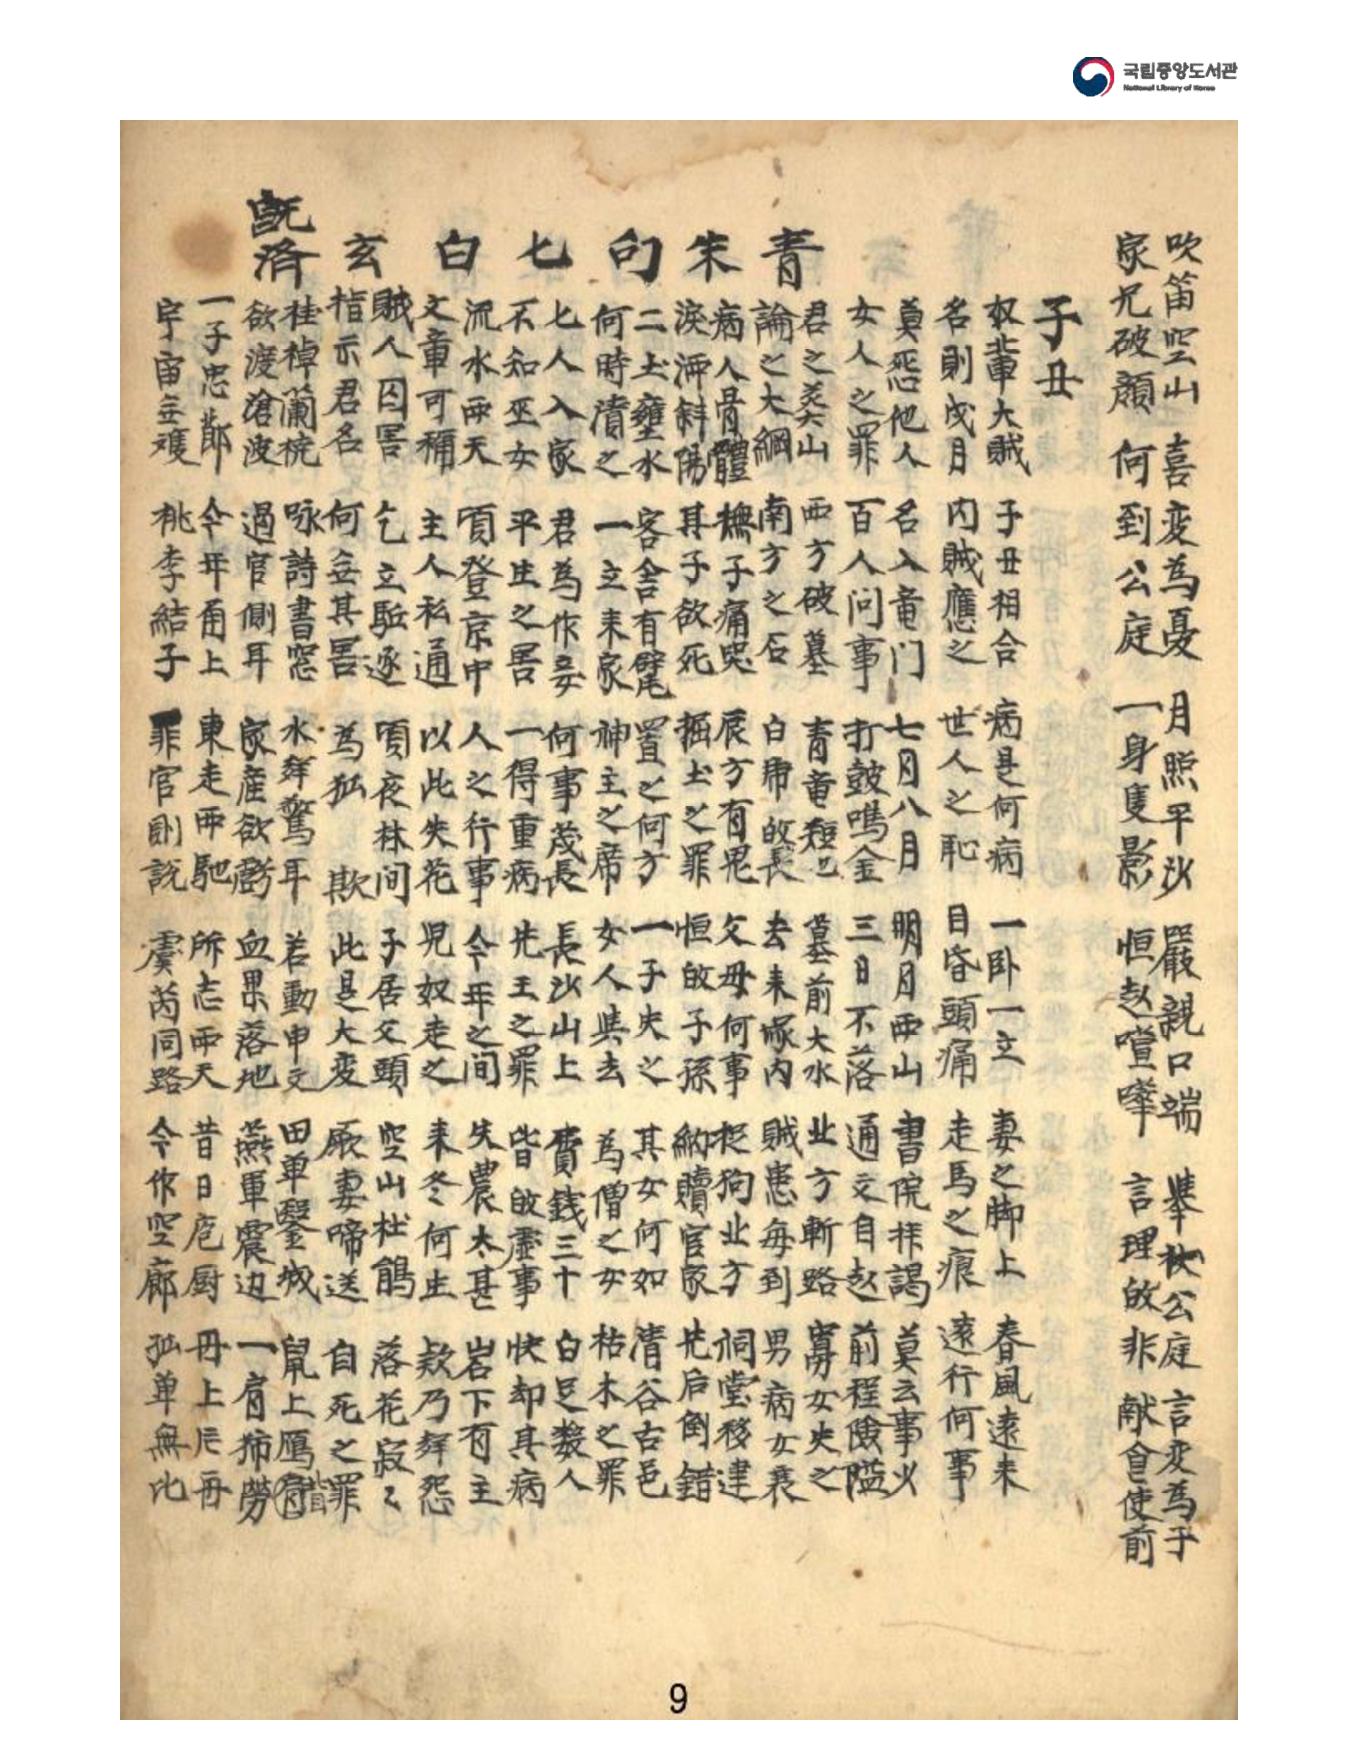 국립중앙도서관
National Library of Korea
吹笛空山 喜変為憂 月照平沙 嚴親口端 擧杖公庭 言変為于
家兄破顔 何到公庭 一身隻影 恒赵喧嘩 言理故非 献會使前
子丑
奴輩大賊 子丑相合 病是何病 一卧一立 妻之脚上 春風遠来
名則戌月 内賊應之 世人之恥 目昏頭痛 走馬之痕 遠行何事
莫怨他人 名入竜门 七月八月 明月西山 書院拝謁 莫云事火
女人之罪 百人问事 打鼓鳴金 三日不落 通文自赵 前程險隘
青
君之美山 西方破墓 青竜短 墓前大水 北方斬路 寡女失之
論之大綱 南方之石 白帯故長 去来塚内 賊患毎到 男病女衰
朱
病人骨體 撫子痛哭 辰方有鬼 父母何事 捉狗北方 祠堂移建
淚沛斜陽 其子欲死 掘土之罪 恒故子孫 納贖官家 先后倒錯
句
二土壅水 客舎有 置之何方 一子失之 其女何如 清谷古邑
何時潰之 一立来家 神主之席 女人與去 為僧之女 枯木之罪
七
七人入家 君為作妾 何事茂長 長沙山上 費銭三十 白足数人
不知巫女 平生之害 一得重病 先王之罪 皆故虚事 快却其病
白
流水西天 頃登京中 人之行事 今年之间 失農太甚 岩下有主
文章可稱 主人私通 以此失花 児奴走之 来冬何生 欵乃舞怨
玄
賊人囚害 乞立駈逐 頃夜林间 子居父頭 空山杜鵑 落花寂々
指示君名 何妄其害 為狐 欺 此是大変 厥妻啼送 自死之罪
既済
桂棹蘭桡 咏詩書窓 水舜驚耳 若動申文 田单鑿城 鼠上雁
欲渡滄波 過官側耳 家産欲 血果落地 燕軍震边 一肩
一子忠節 今年甬上 東走西馳 所志西天 昔日庖厨 冊上
宇宙 桃李結子 罪官則説 虞芮同路 今作空廊 孤单無比
9